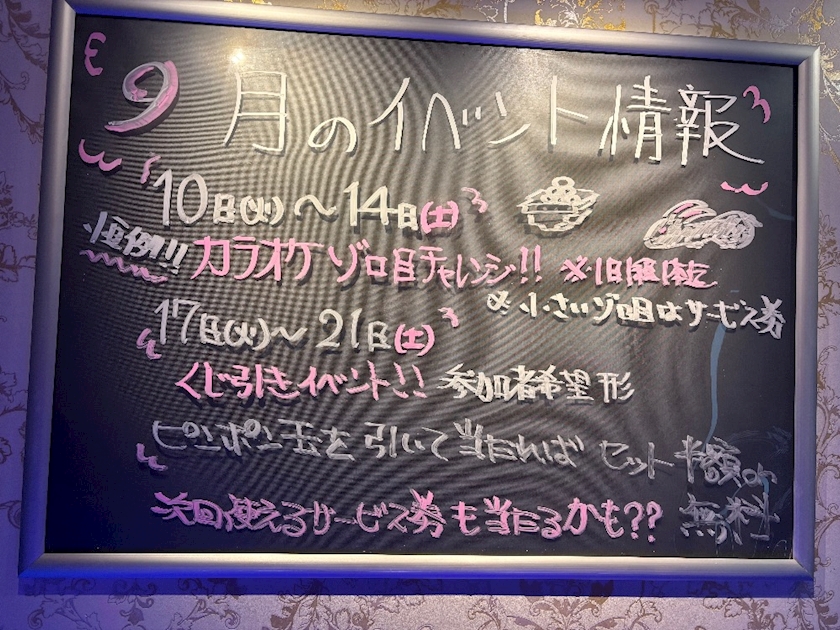 9月のイベント情報
10日(火)〜14日(土)
恒例!!! カラオケ ゾロ目チャレンジ!! ※1日1組限定
※小さいゾロ目はサービス券
17日(火)〜21日(土)
くじ引きイベント!! 参加者希望形
ピンポン玉を引いて当たれば セット半額or
次回使えるサービス券も当たるかも?? 無料